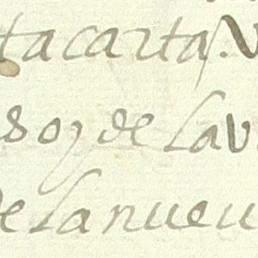 ta carta. V
soy de la v
de la nueu